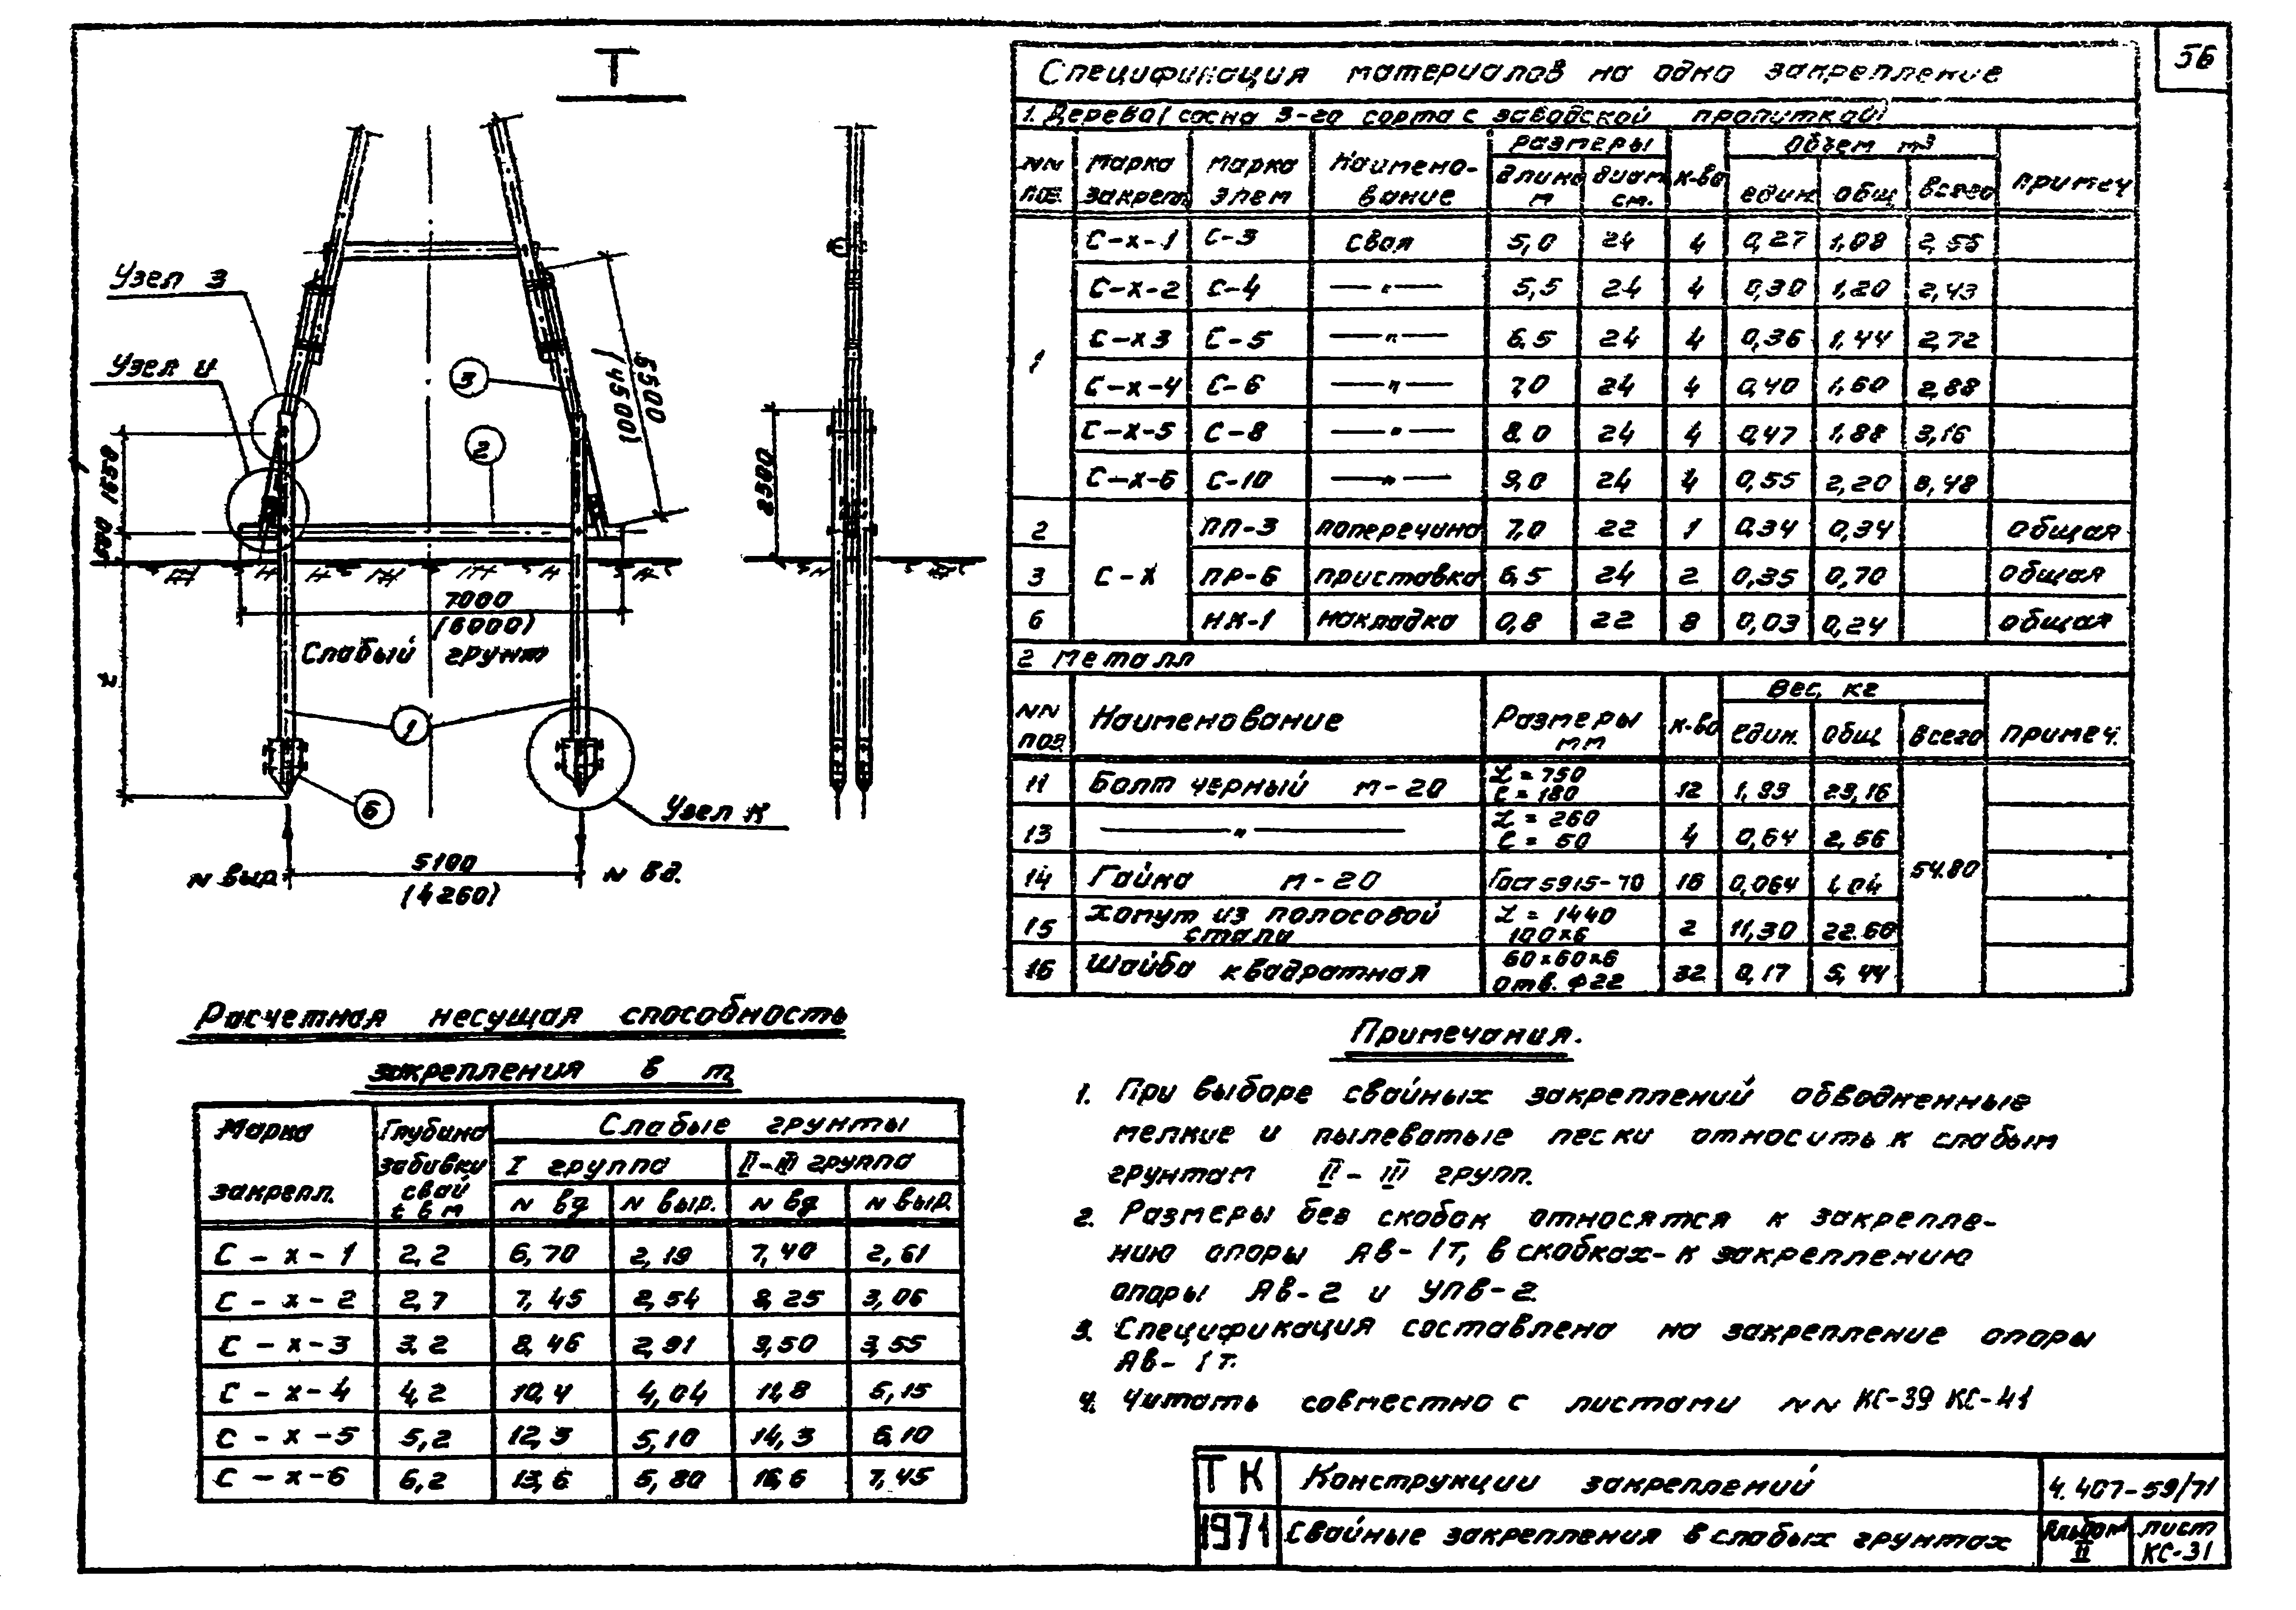 56
Т
Узел З
Узел И
3
2
5500
(4500)
1650
500
t
2500
7000
(6000)
Слабый грунт
1
6
Узел К
N выр.
5100
(4260)
N вд.
Спецификация материалов на одно закрепление
1. Дерево (сосна 3-го сорта с заводской пропиткой)
NN поз. Марка закреп. Марка элем Наименование Размеры длина м диам см. к-во Объем м³ един. общ всего примеч
1 С-х-1 С-3 Свая 5,0 24 4 0,27 1,08 2,56
С-х-2 С-4 —"— 5,5 24 4 0,30 1,20 2,43
С-х3 С-5 —"— 6,5 24 4 0,36 1,44 2,72
С-х-4 С-6 —"— 7,0 24 4 0,40 1,60 2,88
С-х-5 С-8 —"— 8,0 24 4 0,47 1,88 3,16
С-х-6 С-10 —"— 9,0 24 4 0,55 2,20 3,48
2 С-х ПП-3 поперечина 7,0 22 1 0,34 0,34 общая
3 ПР-6 приставка 6,5 24 2 0,35 0,70 общая
6 НК-1 накладка 0,8 22 8 0,03 0,24 общая
2 Металл
NN поз. Наименование Размеры мм к-во Вес, кг един. общ всего примеч.
11 Болт черный м-20 L = 750 ℓ = 180 12 1,93 23,16
13 —"— L = 260 ℓ = 50 4 0,64 2,56
14 Гайка м-20 Гост 5915-70 16 0,064 1,04 54.80
15 Хомут из полосовой стали L = 1440 100×6 2 11,30 22.60
16 Шайба квадратная 60×60×6 отв. ф22 32 0,17 5,44
Расчетная несущая способность
закрепления в т
Марка закрепл. Глубина забивки свай t в м Слабые грунты
I группа II-III группа
N вд N выр. N вд N выр.
С-х-1 2,2 6,70 2,19 7,40 2,61
С-х-2 2,7 7,45 2,54 8,25 3,06
С-х-3 3,2 8,46 2,91 9,50 3,55
С-х-4 4,2 10,4 4,04 11,8 5,15
С-х-5 5,2 12,3 5,10 14,3 6,10
С-х-6 6,2 13,6 5,80 16,6 7,45
Примечания.
1. При выборе свайных закреплений обводненные
мелкие и пылеватые пески относить к слабым
грунтам II - III групп.
2. Размеры без скобок относятся к закрепле-
нию опоры АВ-1т, в скобках - к закреплению
опоры АВ-2 и УПВ-2.
3. Спецификация составлена на закрепление опоры
АВ-1т.
4. Читать совместно с листами NN КС-39 КС-41
ТК Конструкции закреплений 4.407-59/71
1971 Свайные закрепления в слабых грунтах Альбом II лист КС-31